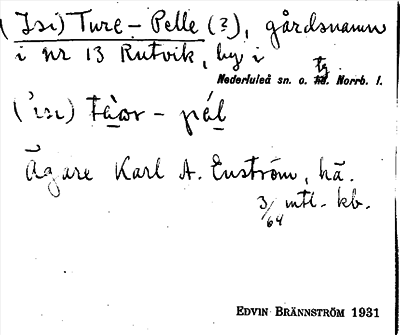 (Isi) Ture - Pelle (?), gårdsnamn
i nr 13 Rutvik, by i
Nederluleå sn. o. tg. Norrb. l.
('ısı) tàor - pál
Ägare Karl A. Enström, hä.
3/64 mtl. kb.
EDVIN BRÄNNSTRÖM 1931